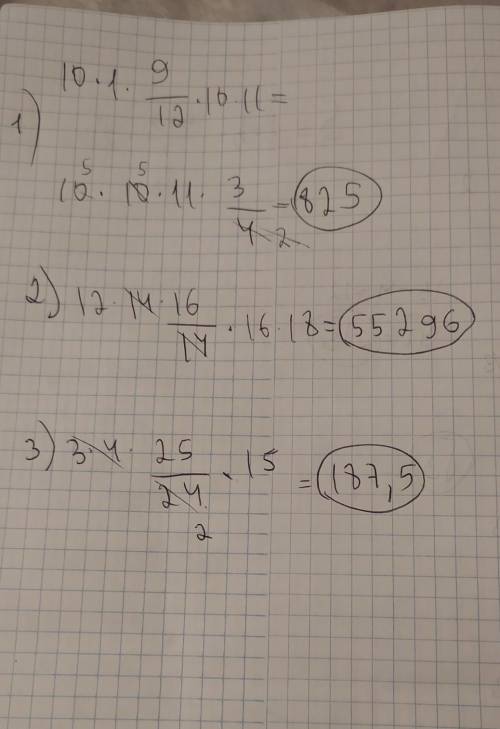 1) 10 · 1 · 9/12 · 10 · 11 =
5 5
10 · 10 · 11 · 3/4 2 = 825
2) 12 · 14 · 16/14 · 16 · 18 = 55296
3) 3 · 4 · 25/24 · 15 = 187,5
2